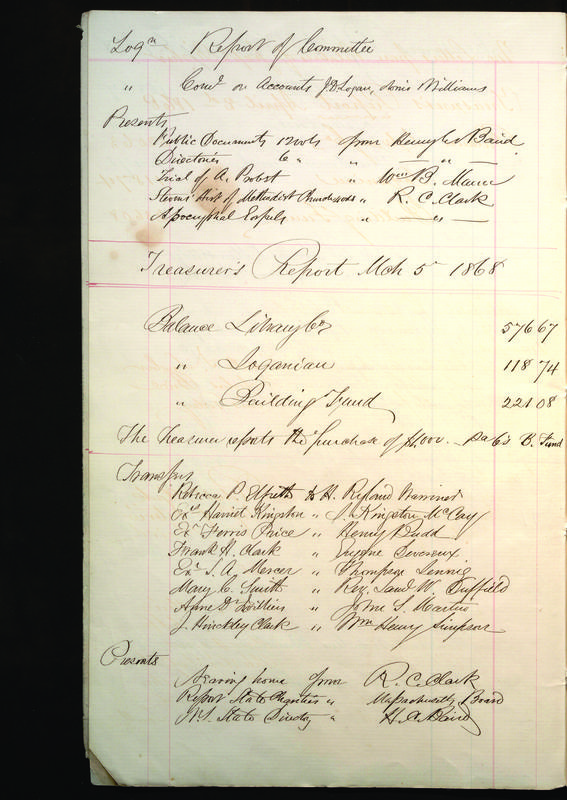 Logn Report of Committee
" Comee on Accounts J. D. Logan, Williams
Presents
Public Documents 12 vols from Henry C. Baird
Directories 6 " " — " —
Trial of A. Probst " Wm B. Mann
Stevens' Hist of Methodist " R. C. Clark
Apocryphal " — " —
Treasurer's Report Mch 5" 1868
Balance Library Co 576 67
" Loganian 118 74
" Building Fund 221 08
The Treasurer reports the purchase of $1,000. Pa 6's B. Fund
Transfers
Rebecca P. Elfreth to H. Ryland Warriner
Exr Harriet Kingston " J. Kingston McCay
Exr Ferris Price " Henry Budd
Frank H. Clark " Eugene Devereux
Exr S. A. Mercer " Thompson Lennig
Mary C. Smith " Rev. Saml W. Duffield
Anne D. " John S. Martin
J. Hinckley Clark " Wm Henry Simpson
Presents
Leaving home from R. C. Clark
Report State Charities " Massachusetts Board
State Directory " H. C. Baird